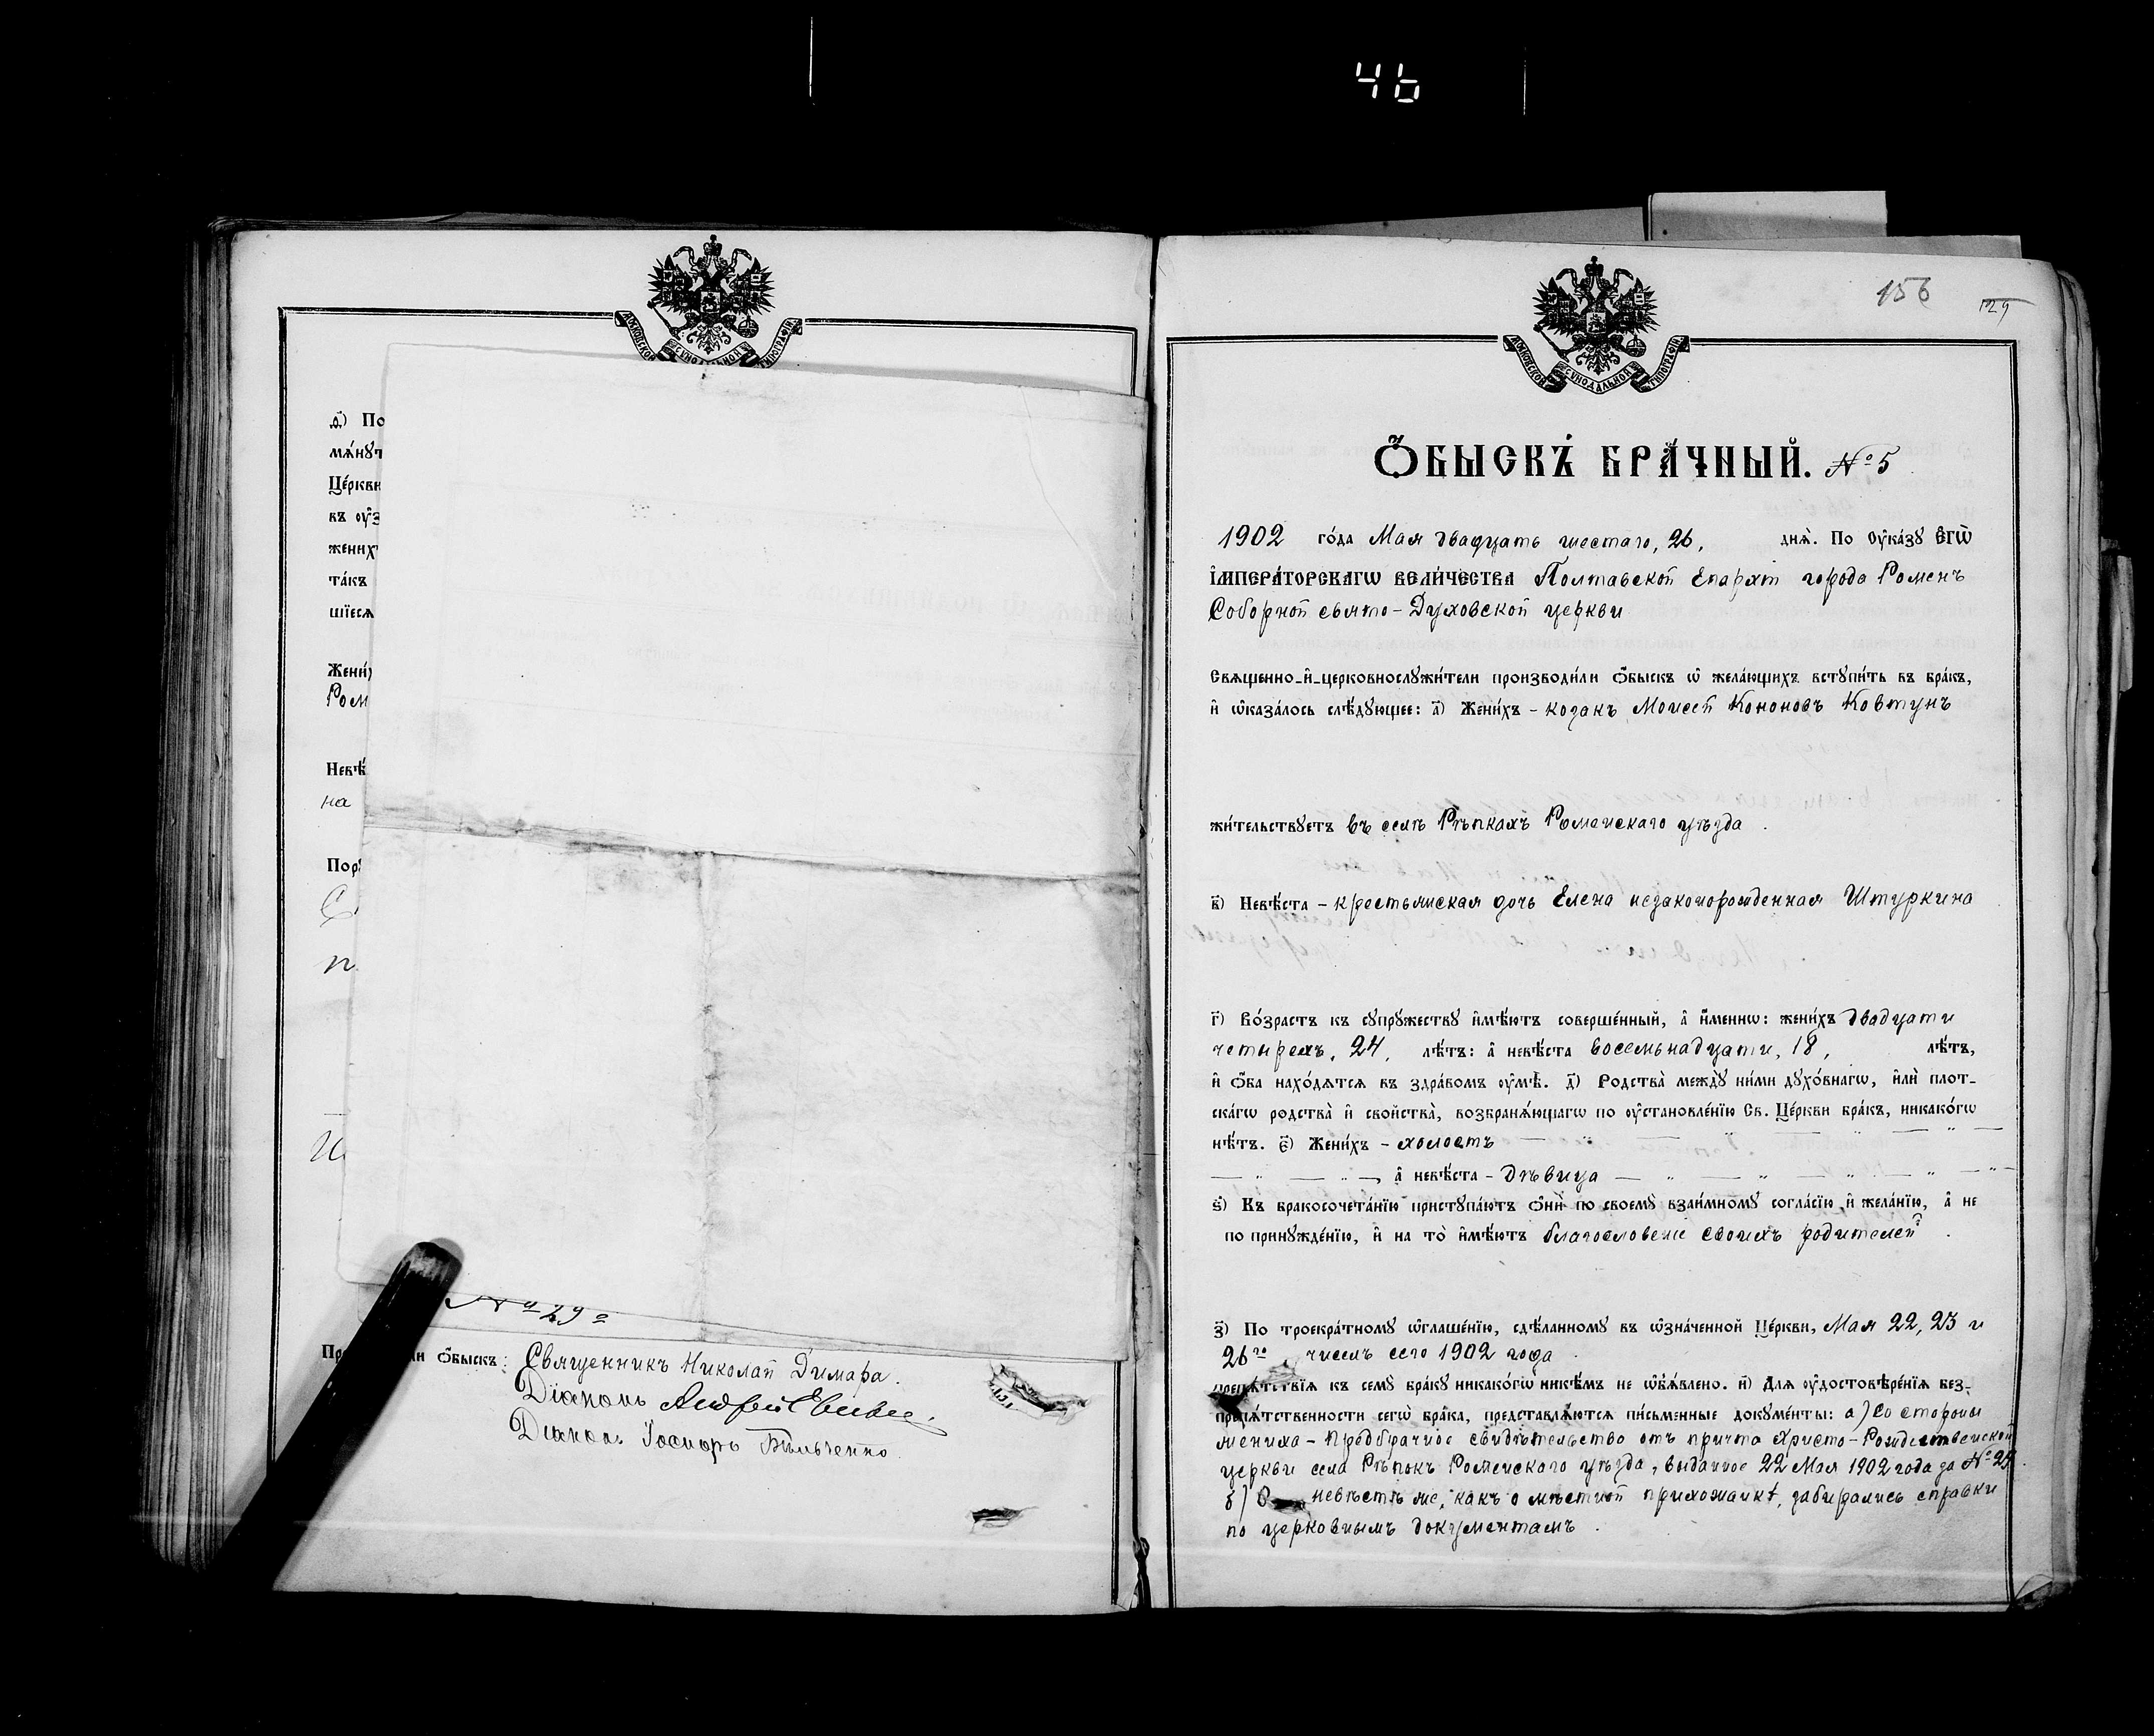 46
МОСКОВСКОЙ СѴНОДАЛЬНОЙ ТИПОГРАФІИ
д҃) По
мѧнꙋт
Це́ркви
въ ᲂу҆з
женихъ
та́къ
шїесѧ
Жени́х
Ром
Невѣ́
на
Порꙋ
№ 29
ли ѻ҆́быскъ: Священникъ Николай Димара.
Діаконъ Андрей
Діаконъ Іосифъ
156
129
МОСКОВСКОЙ СѴНОДАЛЬНОЙ ТИПОГРАФІИ
Ѻ҆́БЫСКЪ БРА́ЧНЫЙ. № 5
1902 го́да Мая двадцать шестаго, 26, днѧ̀. По Оу҆ка́зꙋ Є҆гѡ̀
І҆МПЕРА́ТОРСКАГѠ ВЕЛИ́ЧЕСТВА Полтавской Епархіи города Роменъ
Соборной свято-Духовской церкви
Свѧщенно-и҆-церковнослꙋжи́тели производи́ли ѻ҆́быскъ ѡ҆ жела́ющихъ встꙋпи́ть въ бра́къ,
и҆ ѡ҆каза́лось слѣ́дꙋющее: а҃) Жени́хъ - козакъ Моисей Кононовъ Ковтунъ
жи́тельствꙋетъ въ селѣ Рѣпкахъ Роменскаго уѣзда.
в҃) Невѣ́ста - крестьянская дочь Елена незаконорожденная Штуркина
г҃) Во́зрастъ къ сꙋпрꙋ́жествꙋ и҆мѣ́ютъ соверше́нный, а҆ и҆́меннѡ: жени́хъ двадцати
четырехъ, 24, лѣ́тъ: а҆ невѣ́ста восемьнадцати, 18, лѣ́тъ,
и҆ ѻ҆́ба нахо́дѧтсѧ въ здра́вомъ ᲂу҆мѣ̀. д҃) Родства̀ междꙋ̀ ни́ми дꙋхо́внагѡ, и҆лѝ плот-
ска́гѡ родства̀ и҆ сво́йства̀, возбранѧ́ющагѡ по ᲂу҆становле́нїю Св. Це́ркви бра́къ, никако́гѡ
нѣ́тъ. є҃) Жени́хъ - холостъ
а҆ невѣ́ста - дѣвица
ѕ҃) Къ бракосочета́нїю пристꙋпа́ютъ ѻ҆нѝ по своемꙋ̀ взаи́мномꙋ согла́сїю и҆ жела́нїю, а҆ не
по принꙋжде́нїю, и҆ на то̀ и҆мѣ́ютъ благословеніе своихъ родителей.
з҃) По троекра́тномꙋ ѡ҆глаше́нїю, сдѣ́ланномꙋ въ ѡ҆зна́ченной Це́ркви, Мая 22, 23 и
26го числъ сего 1902 года
препѧ́тствїѧ къ семꙋ̀ бра́кꙋ никако́гѡ никѣ́мъ не ѡ҆б̾ѧ́влено. и҃) Длѧ ᲂу҆достовѣре́нїѧ без-
препѧ́тственности сегѡ̀ бра́ка, представлѧ́ютсѧ пи́сьменные докꙋме́нты: а) со стороны
жениха - предбрачное свидѣтельство отъ причта Христо-Рождественской
церкви села Рѣпокъ Роменскаго уѣзда, выданное 22 Мая 1902 года за № 29.
б) О невѣстѣ же, какъ о мѣстной прихожанкѣ, забирались справки
по церковнымъ документамъ.